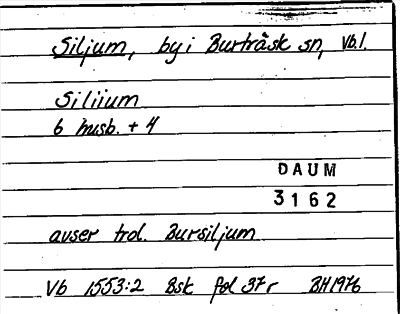 Siljum, by i Burträsk sn, Vb.l.
Siliium
6 husb. + 4
DAUM
3162
avser trol. Bursiljum
Vb 1553:2 Bsk fol 37r BH 1976